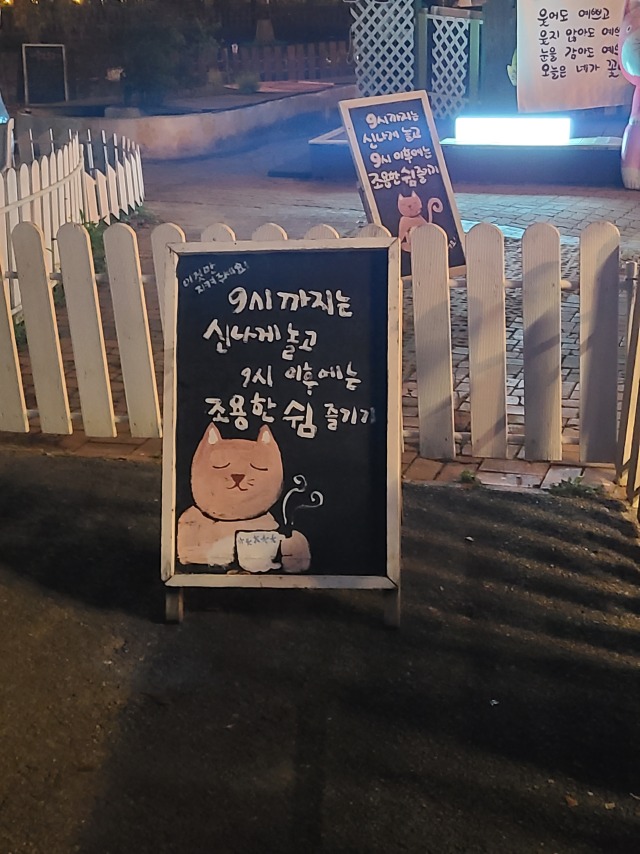 이것만
지켜주세요!
9시 까지는
신나게 놀고
9시 이후에는
조용한 쉼 즐기기
9시 까지는
신나게 놀고
9시 이후에는
조용한 쉼 즐기기
웃어도 예쁘고
웃지 않아도 예쁘
눈을 감아도 예
오늘은 네가 꽃